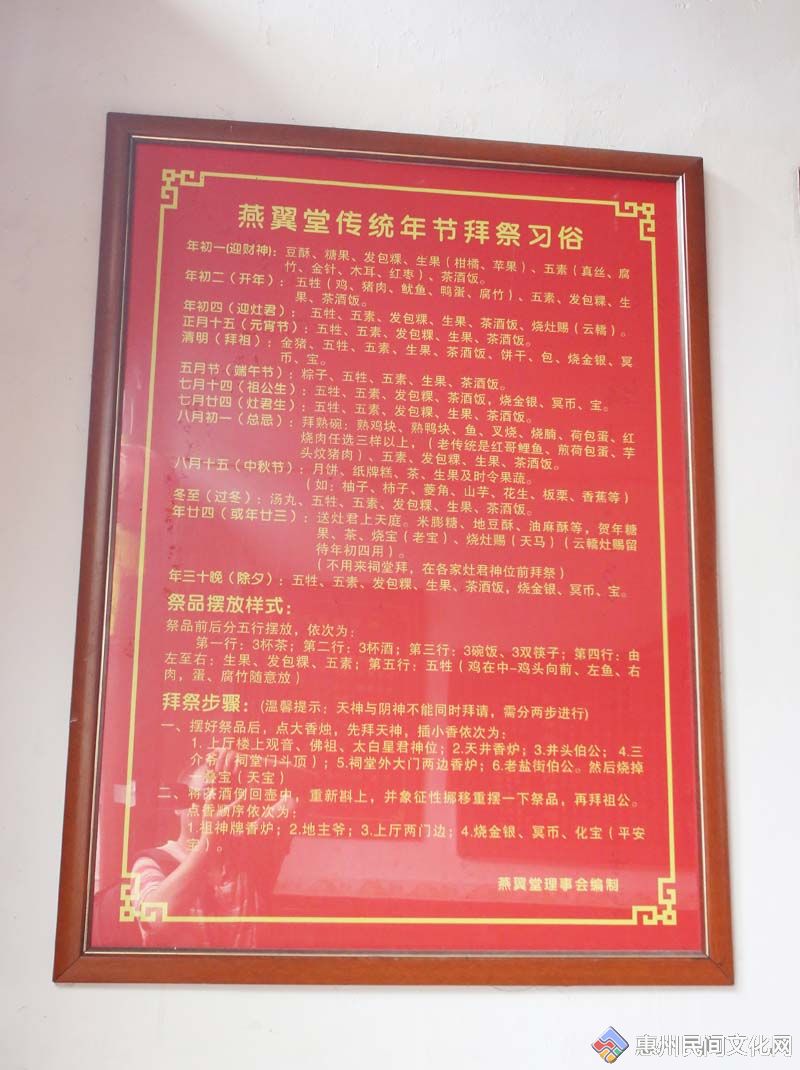 燕翼堂传统年节拜祭习俗
年初一(迎财神)：豆酥、糖果、发包粿、生果（柑橘、苹果）、五素（真丝、腐
竹、金针、木耳、红枣）、茶酒饭。
年初二（开年）：五牲（鸡、猪肉、鱿鱼、鸭蛋、腐竹）、五素、发包粿、生
果、茶酒饭。
年初四（迎灶君）：五牲、五素、发包粿、生果、茶酒饭、烧灶赐（云轎）。
正月十五（元宵节）：五牲、五素、发包粿、生果、茶酒饭。
清明（拜祖）：金猪、五牲、五素、生果、茶酒饭、饼干、包、烧金银、冥
币、宝。
五月节（端午节）：粽子、五牲、五素、生果、茶酒饭。
七月十四（祖公生）：五牲、五素、发包粿、茶酒饭，烧金银、冥币、宝。
七月廿四（灶君生）：五牲、五素、发包粿、生果、茶酒饭。
八月初一（总忌）：拜熟碗：熟鸡块、熟鸭块、鱼、叉烧、烧腩、荷包蛋、红
烧肉任选三样以上，（老传统是红哥鲤鱼、煎荷包蛋、芋
头炆猪肉）、五素、发包粿、生果、茶酒饭。
八月十五（中秋节）：月饼、纸牌糕、茶、生果及时令果蔬。
（如：柚子、柿子、菱角、山芋、花生、板栗、香蕉等）
冬至（过冬）：汤丸、五牲、五素、发包粿、生果、茶酒饭。
年廿四（或年廿三）：送灶君上天庭。米膨糖、地豆酥、油麻酥等，贺年糖
果、茶、烧宝（老宝）、烧灶赐（天马）（云轎灶赐留
待年初四用）。
（不用来祠堂拜，在各家灶君神位前拜祭）
年三十晚（除夕）：五牲、五素、发包粿、生果、茶酒饭，烧金银、冥币、宝。
祭品摆放样式：
祭品前后分五行摆放，依次为：
第一行：3杯茶；第二行：3杯酒；第三行：3碗饭、3双筷子；第四行：由
左至右：生果、发包粿、五素；第五行：五牲（鸡在中-鸡头向前、左鱼、右
肉，蛋、腐竹随意放）
拜祭步骤：(温馨提示：天神与阴神不能同时拜请，需分两步进行)
一、摆好祭品后，点大香烛，先拜天神，插小香依次为：
1.上厅楼上观音、佛祖、太白星君神位；2.天井香炉；3.井头伯公；4.三
介爷（祠堂门斗顶）；5.祠堂外大门两边香炉；6.老盐街伯公。然后烧掉
一叠宝（天宝）
二、将茶酒倒回壶中，重新斟上，并象征性挪移重摆一下祭品，再拜祖公。
点香顺序依次为：
1.祖神牌香炉；2.地主爷；3.上厅两门边；4.烧金银、冥币、化宝（平安
宝）。
燕翼堂理事会编制
惠州民间文化网